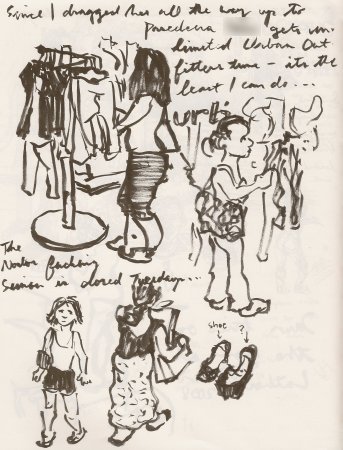 Since I dragged her all the way up to
Pasadena gets un-
limited Urban Out
fitters time - its the
least I can do...
The
Norton
Simon is closed Tuesdays...
shoe ?